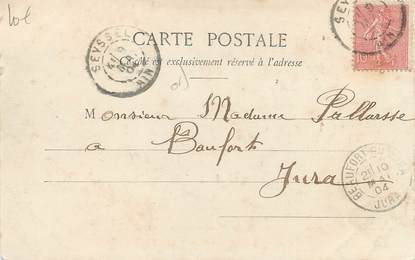 CARTE POSTALE
Ce côté est exclusivement réservé à l'adresse
SEYSSEL
AIN
SEYSSEL
AIN
10
Monsieur Madame Pallarsse
a Baufort
Jura
BEAUFORT
10
MAI
04
JURA